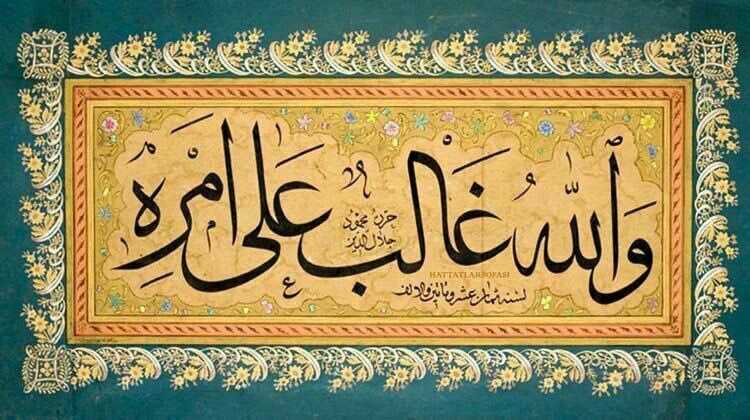 وَاللّٰهُ غَالِبٌ عَلٰى اَمْرِهِ
حرره محمود
جلال الدين
HATTATLARSOFASI
لسنه ثمان عشر ومائتين والف